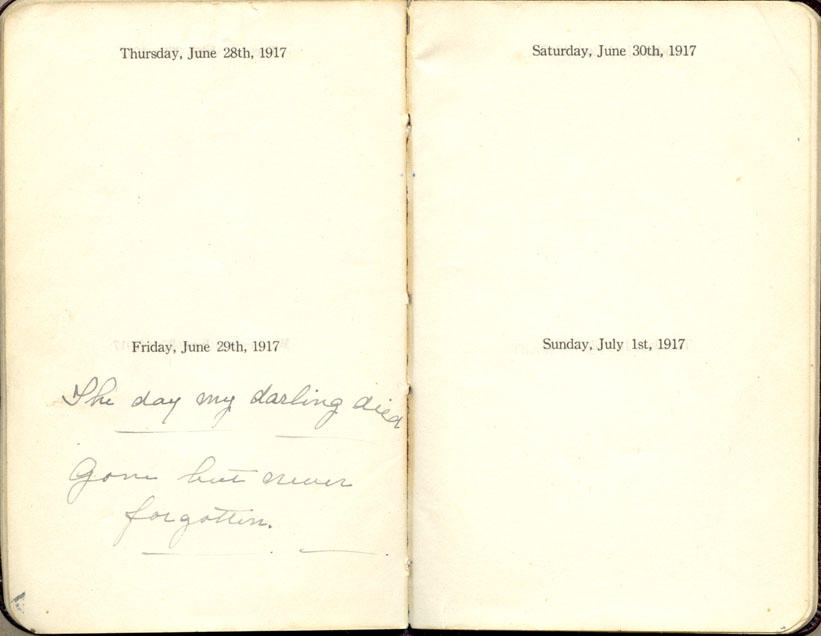 Thursday, June 28th, 1917
Friday, June 29th, 1917
The day my darling died
Gone but never
forgotten.
Saturday, June 30th, 1917
Sunday, July 1st, 1917